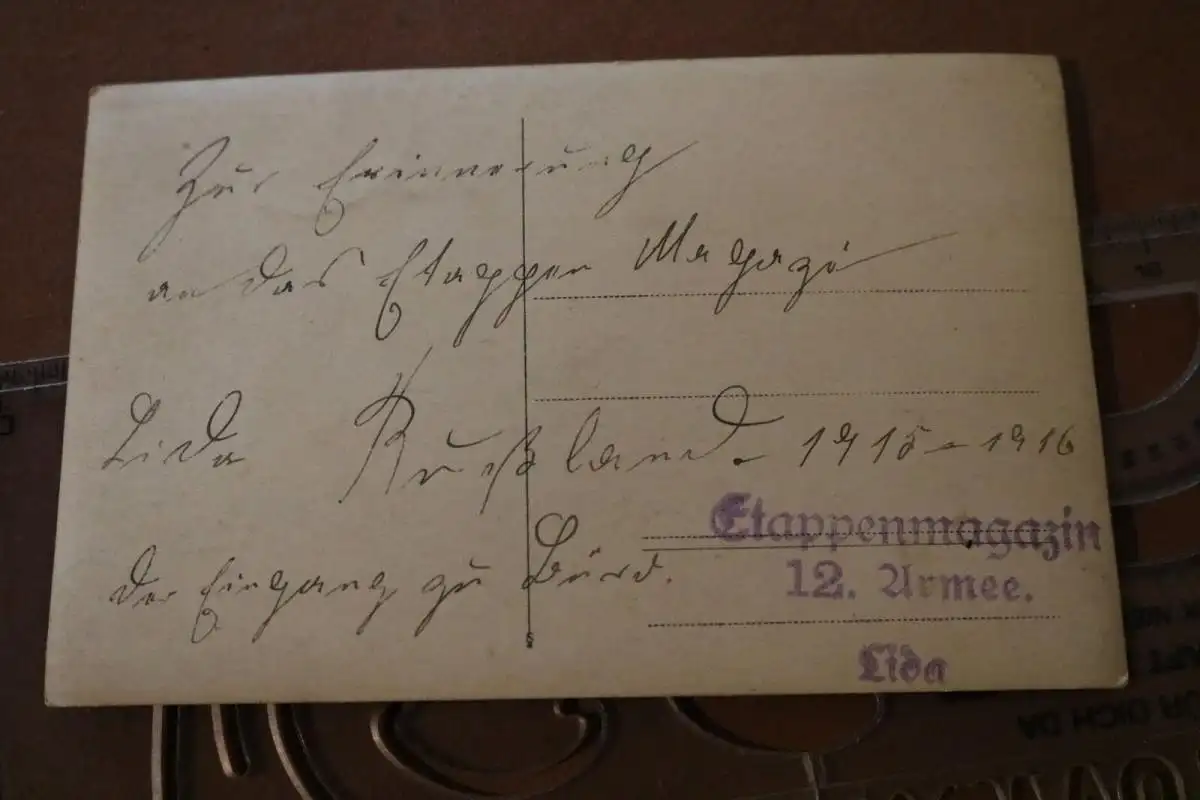 Zur Erinnerung
an das Etappen Magazi
Lida Rußland. 1915-1916
der Eingang zu
Etappenmagazin
12. Armee.
Lida
5